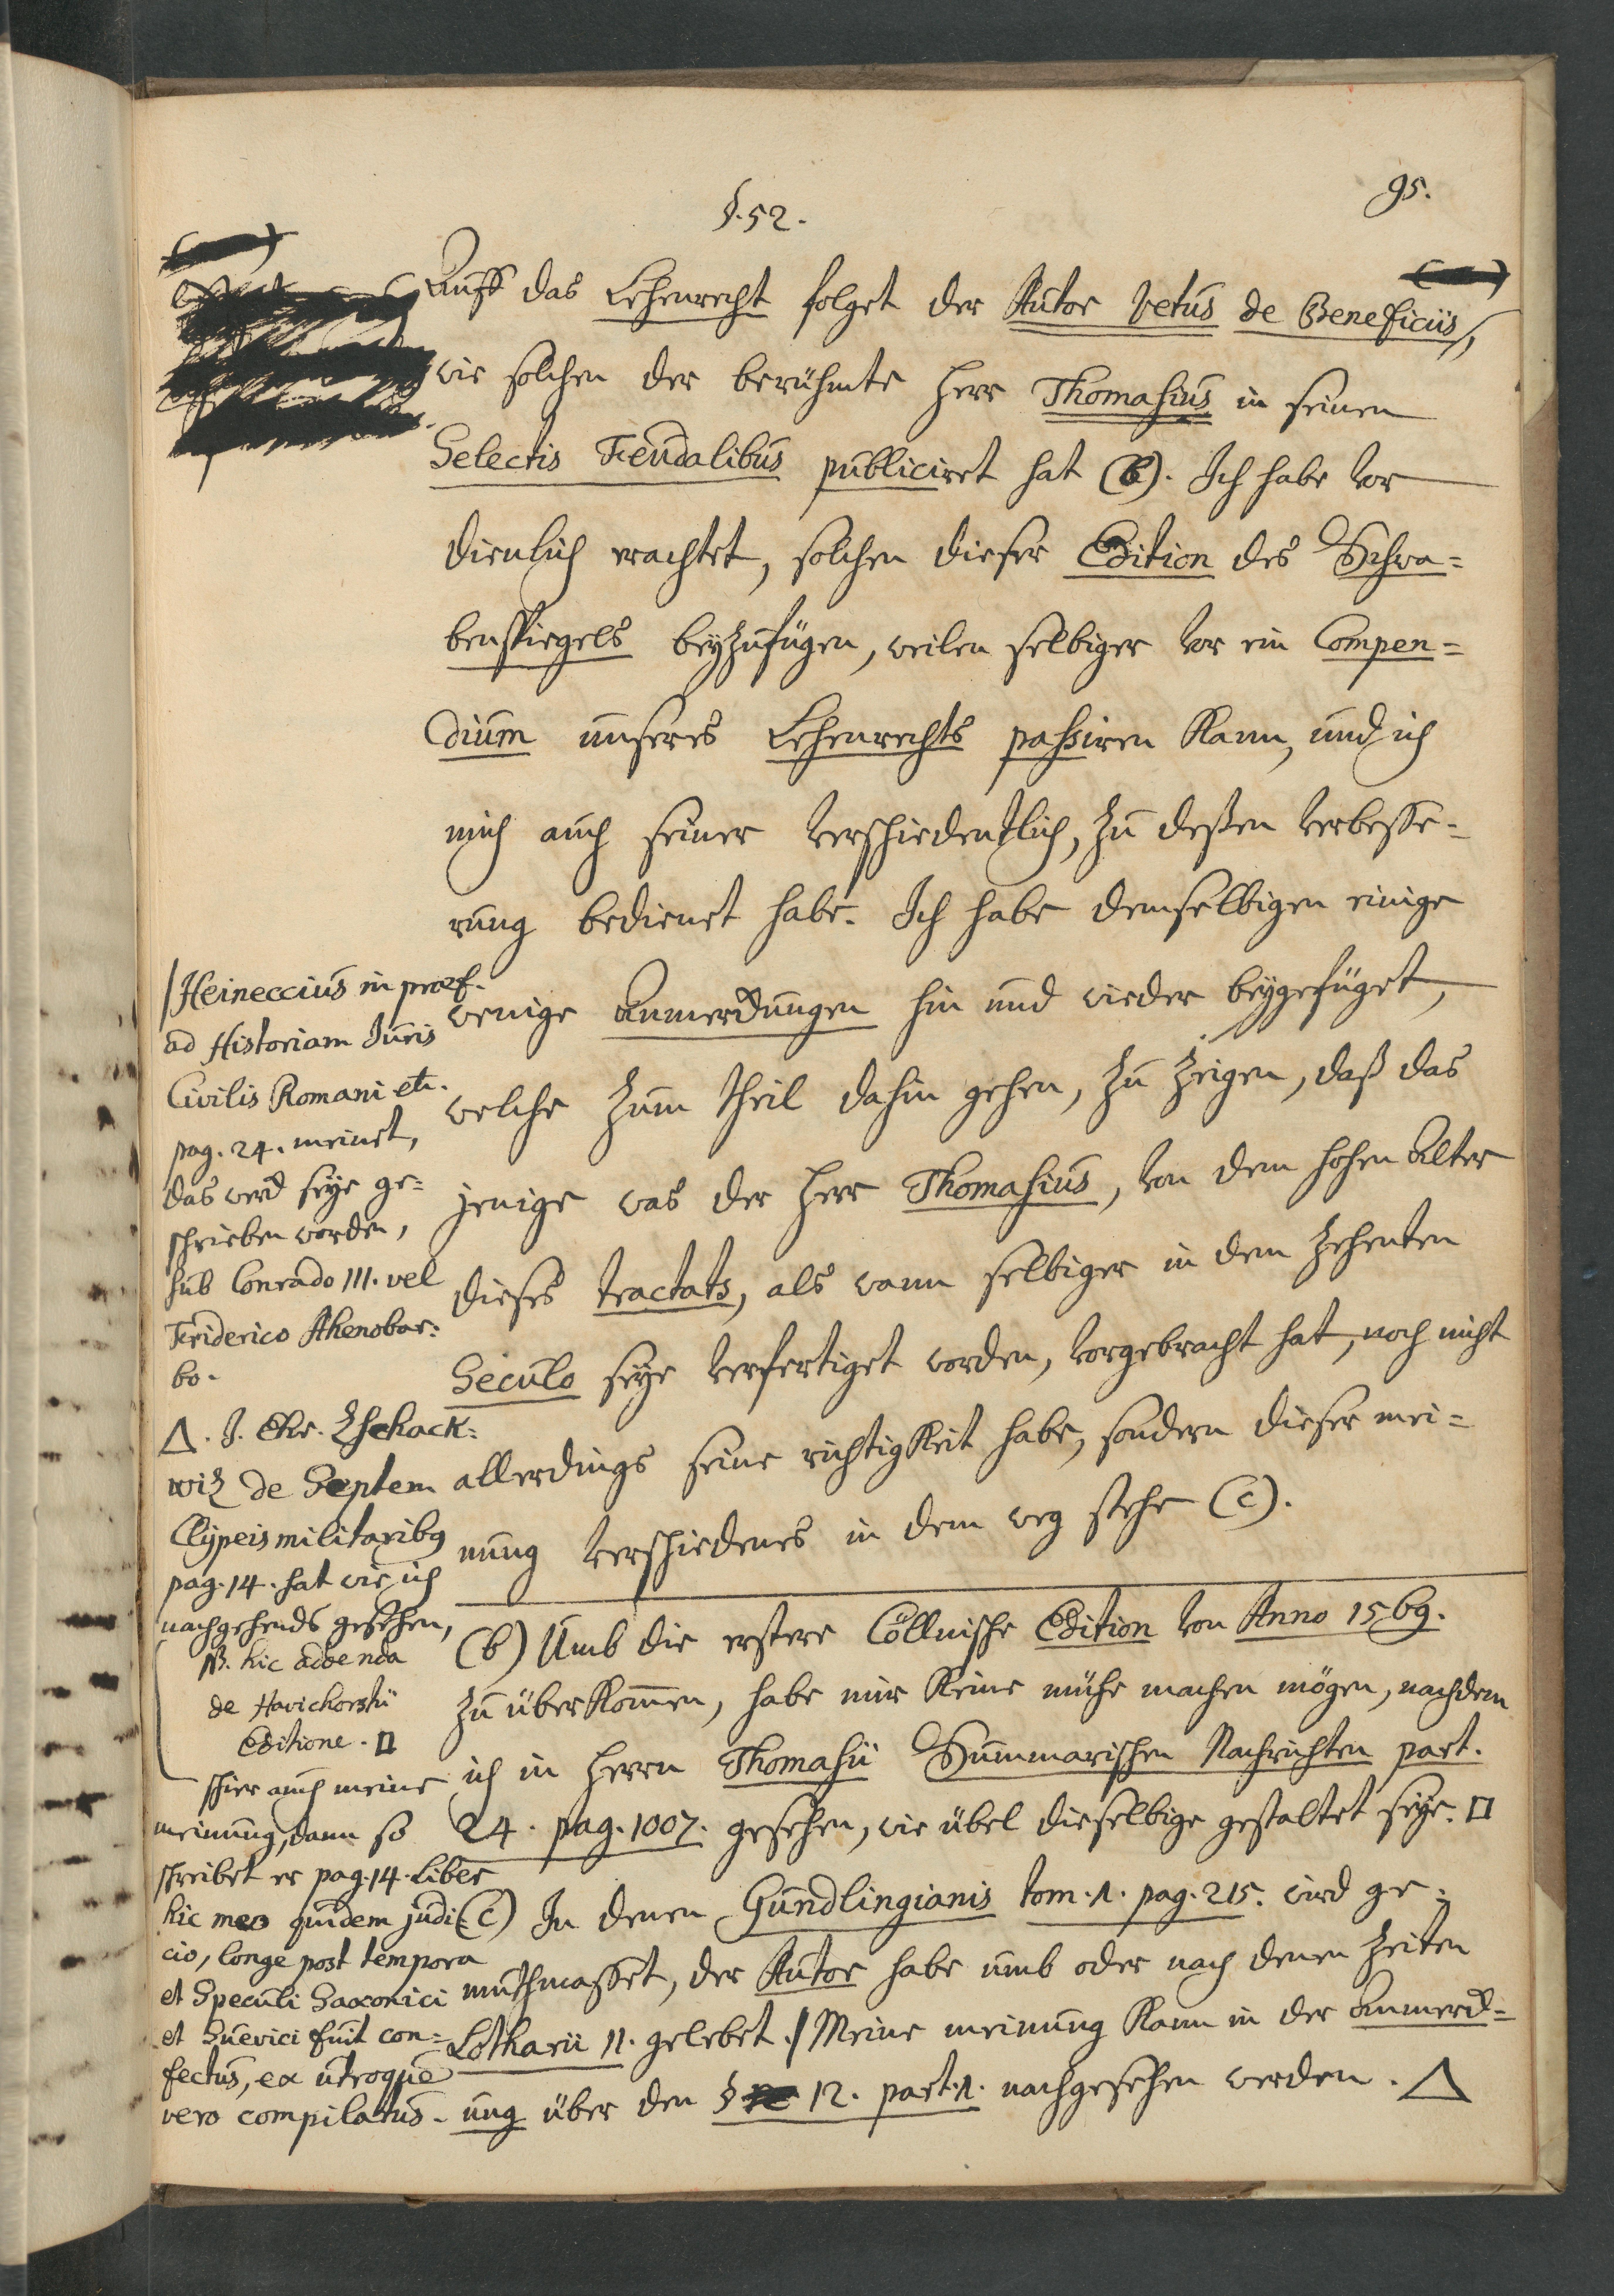 95.
§. 52.
Auff das Lehenrecht folget der Autor Vetus de Beneficiis,
wie solchen der berühmte Herr Thomasius in seinen
Selectis Feudalibus publiciret hat (b). Ich habe vor
dienlich erachtet, solchen dieser Edition des Schwa=
benspiegels beyzufügen, weilen selbiger vor ein Compen=
dium unseres Lehenrechts passiren kann, und ich
mich auch seiner verschiedentlich, zu deßen verbesse=
rung bedienet habe. Ich habe demselbigen einige
wenige Anmerckungen hin und wieder beygefüget,
welche zum theil dahin gehen, zu zeigen, daß das
jenige was der Herr Thomasius, von dem hohen Alter
dieses tractats, als wann selbiger in dem zehenten
Seculo seye verfertiget worden, vorgebracht hat, noch nicht
allerdings seine richtigkeit habe, sondern dieser mei=
nung verschiedenes in dem weg stehe (c).
(b) Umb die erstere Cöllnische Edition von Anno 1569.
zu überkommen, habe mir keine mühe machen mögen, nachdem
ich in Herrn Thomasii Summarischen Nachrichten part.
24. pag. 1007. gesehen, wie übel dieselbige gestaltet seye. □
(c) In denen Gundlingianis tom. 1. pag. 215. wird ge=
muthmasset, der Autor habe umb oder nach denen Zeiten
Lotharii II. gelebet. / Meine meinung kann in der Anmerck=
ung über den § 12. part. 1. nachgesehen werden. Δ
/ Heineccius in praef.
ad Historiam Juris
Civilis Romani etc.
pag. 24. meinet,
das werck seye ge=
schrieben worden,
sub Conrado III. vel
Friderico Ahenobar=
bo.
Δ. J. Chr. Zschack=
wiz de Septem
Clypeis militaribq
pag. 14. hat wie ich
nachgehends gesehen,
NB. hic addenda
de
Editione. □
schier auch meine
meinung, dann so
schreibet er pag. 14. Liber
hic meo quidem judi=
cio, longe post tempora
et Speculi Saxonici
et Suevici fuit con=
fectus, ex utroque
vero compilatus.